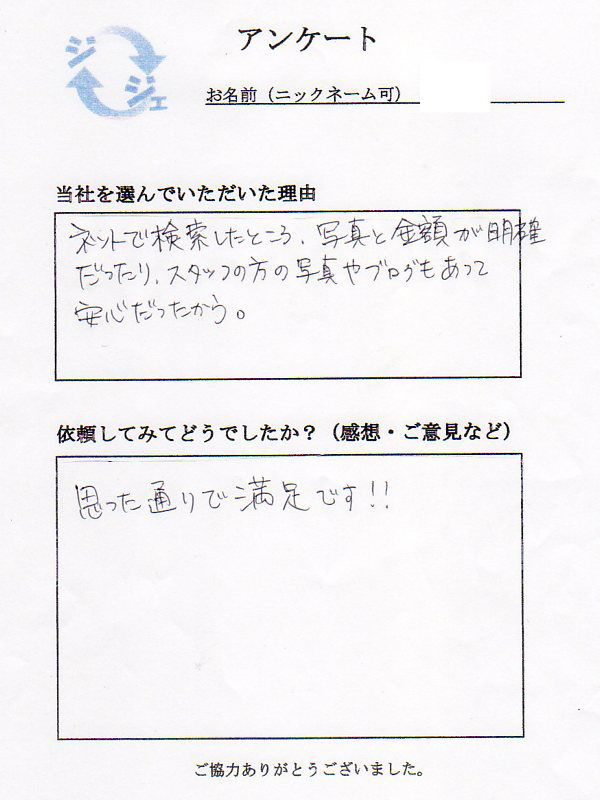 アンケート
ジ
ジェ
お名前（ニックネーム可）
当社を選んでいただいた理由
ネットで検索したところ、写真と金額が明確
だったり、スタッフの方の写真やブログもあって
安心だったから。
依頼してみてどうでしたか？（感想・ご意見など）
思った通りで満足です!!
ご協力ありがとうございました。